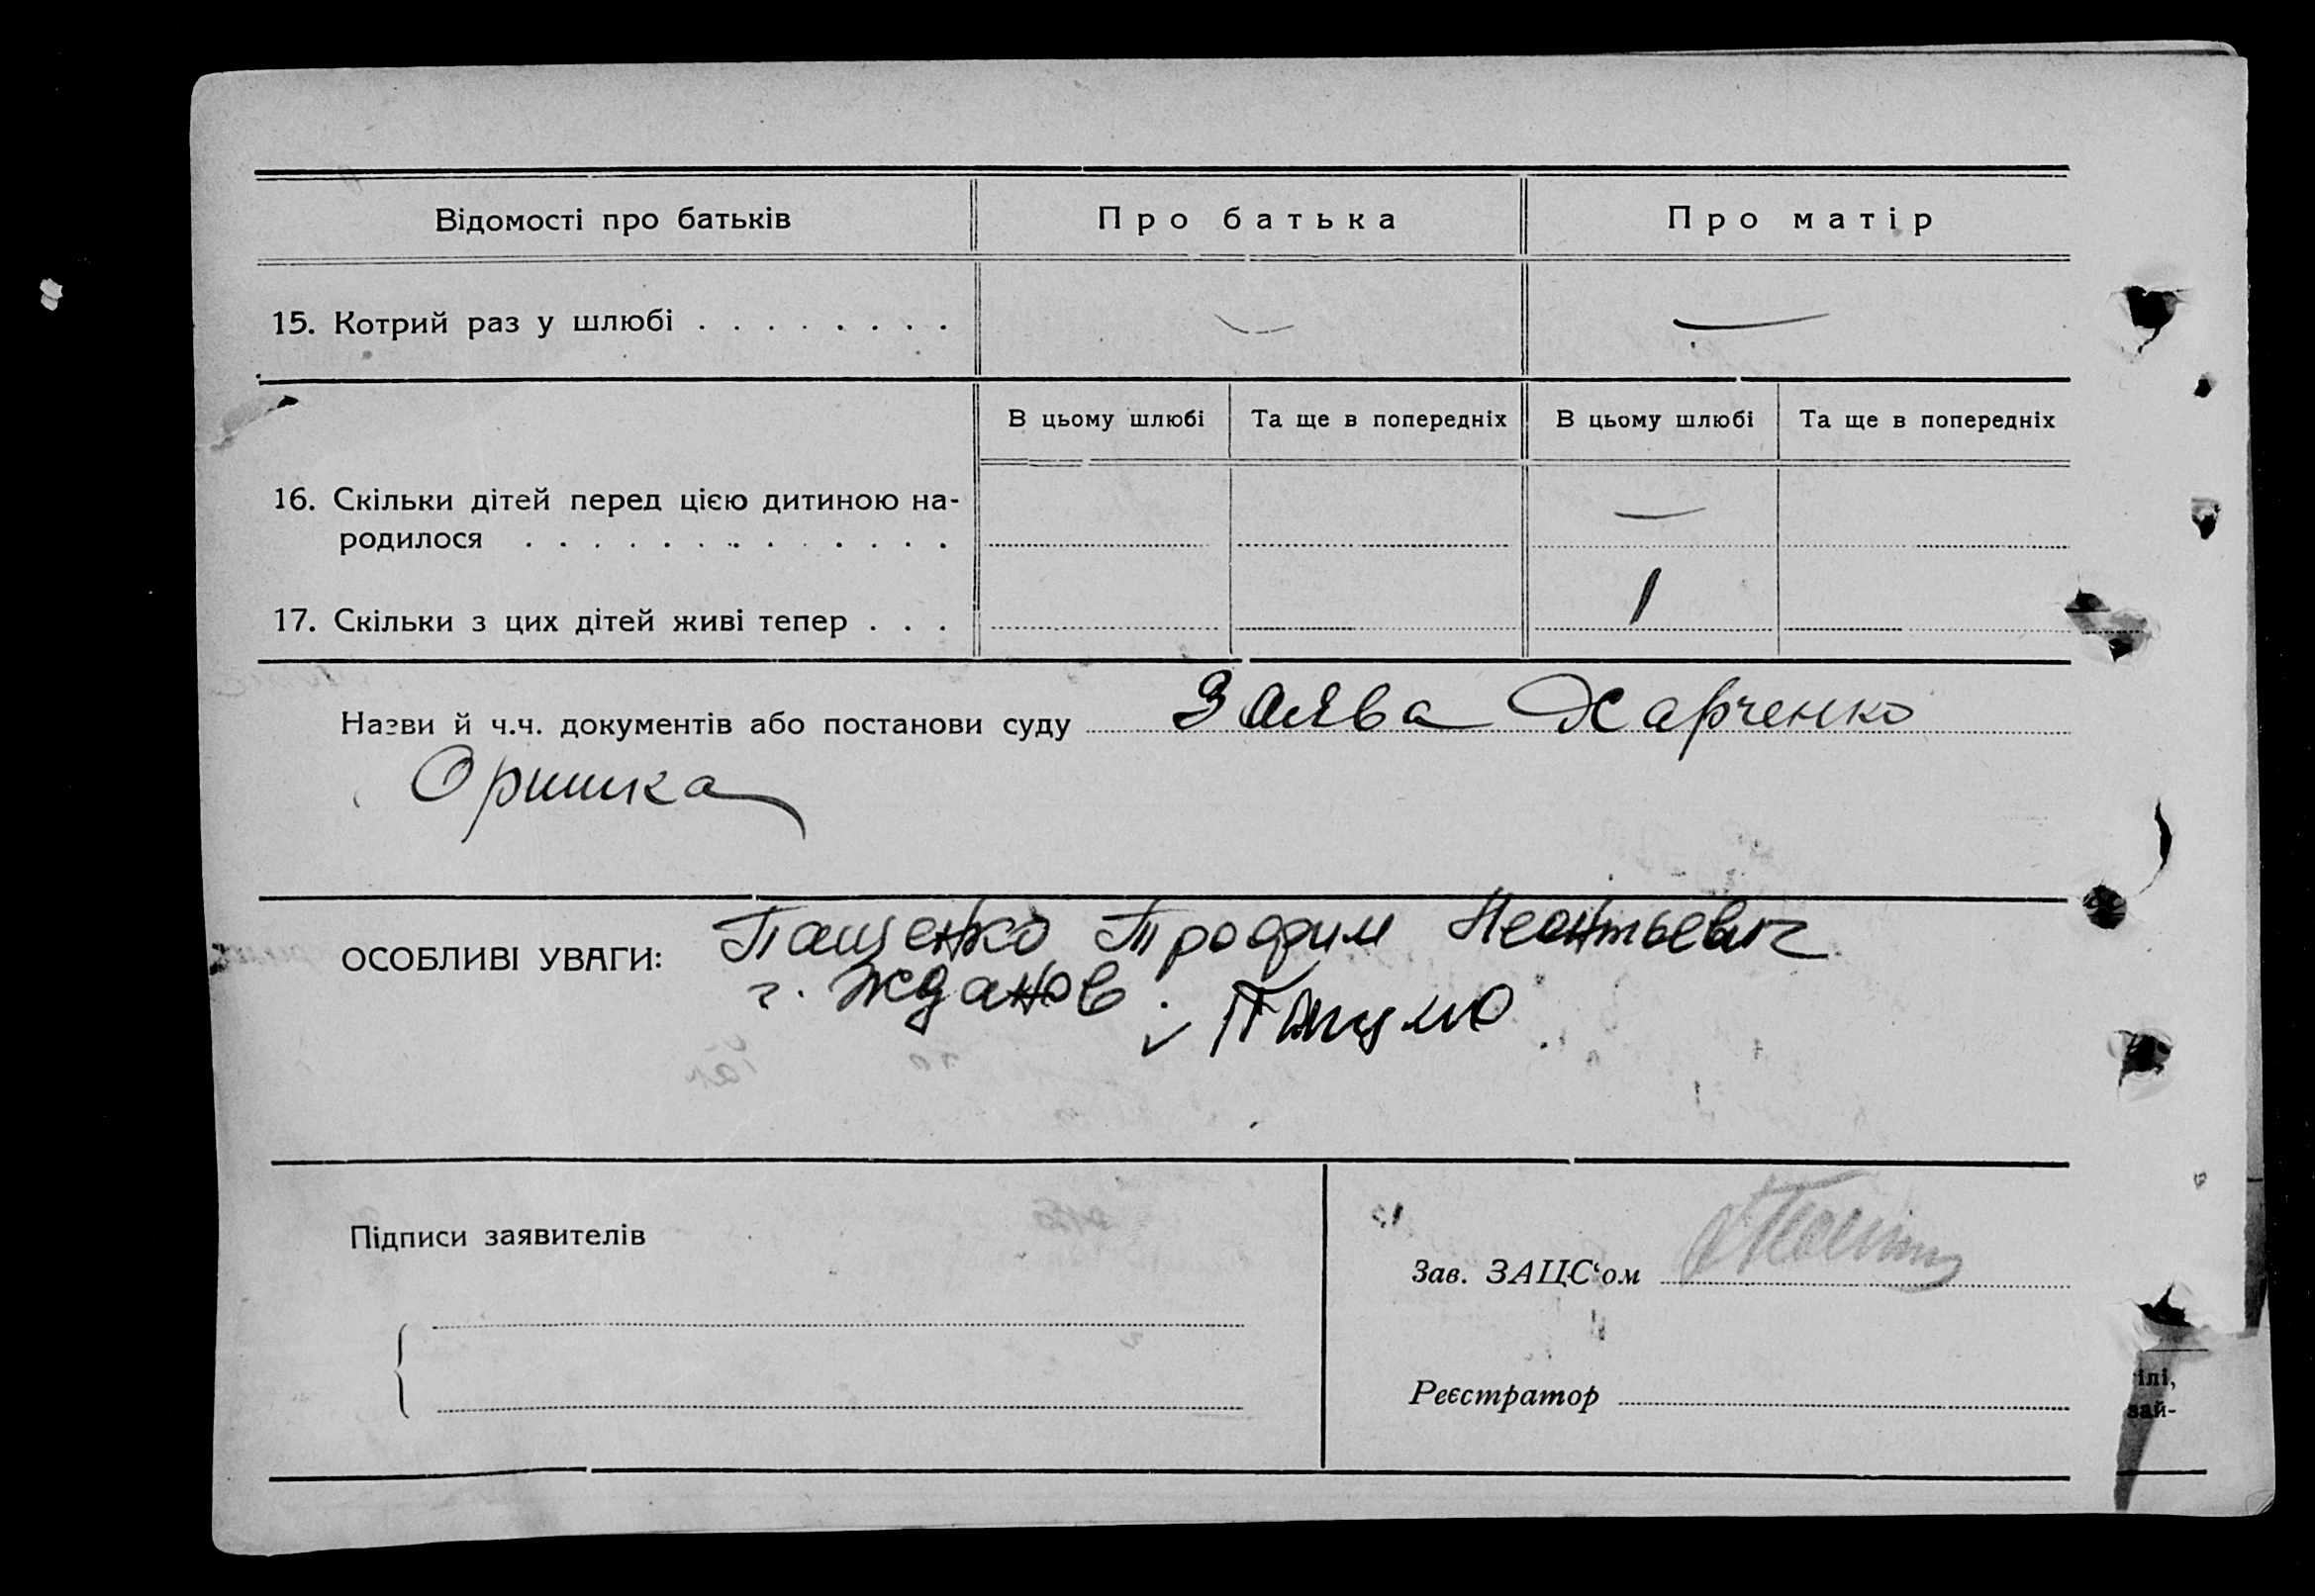 Відомості про батьків Про батька Про матір
15. Котрий раз у шлюбі . . . . . . . . — —
В цьому шлюбі Та ще в попередніх В цьому шлюбі Та ще в попередніх
16. Скільки дітей перед цією дитиною на-
родилося . . . . . . . . . . . . . —
17. Скільки з цих дітей живі тепер . . . 1
Назви й ч.ч. документів або постанови суду Заява Харченко
Оришка
ОСОБЛИВІ УВАГИ: Пащенко Трофим Леонтьевич
г. Жданов.
Підписи заявителів
Зав. ЗАЦС‘ом
Реєстратор
ілі,
зай-